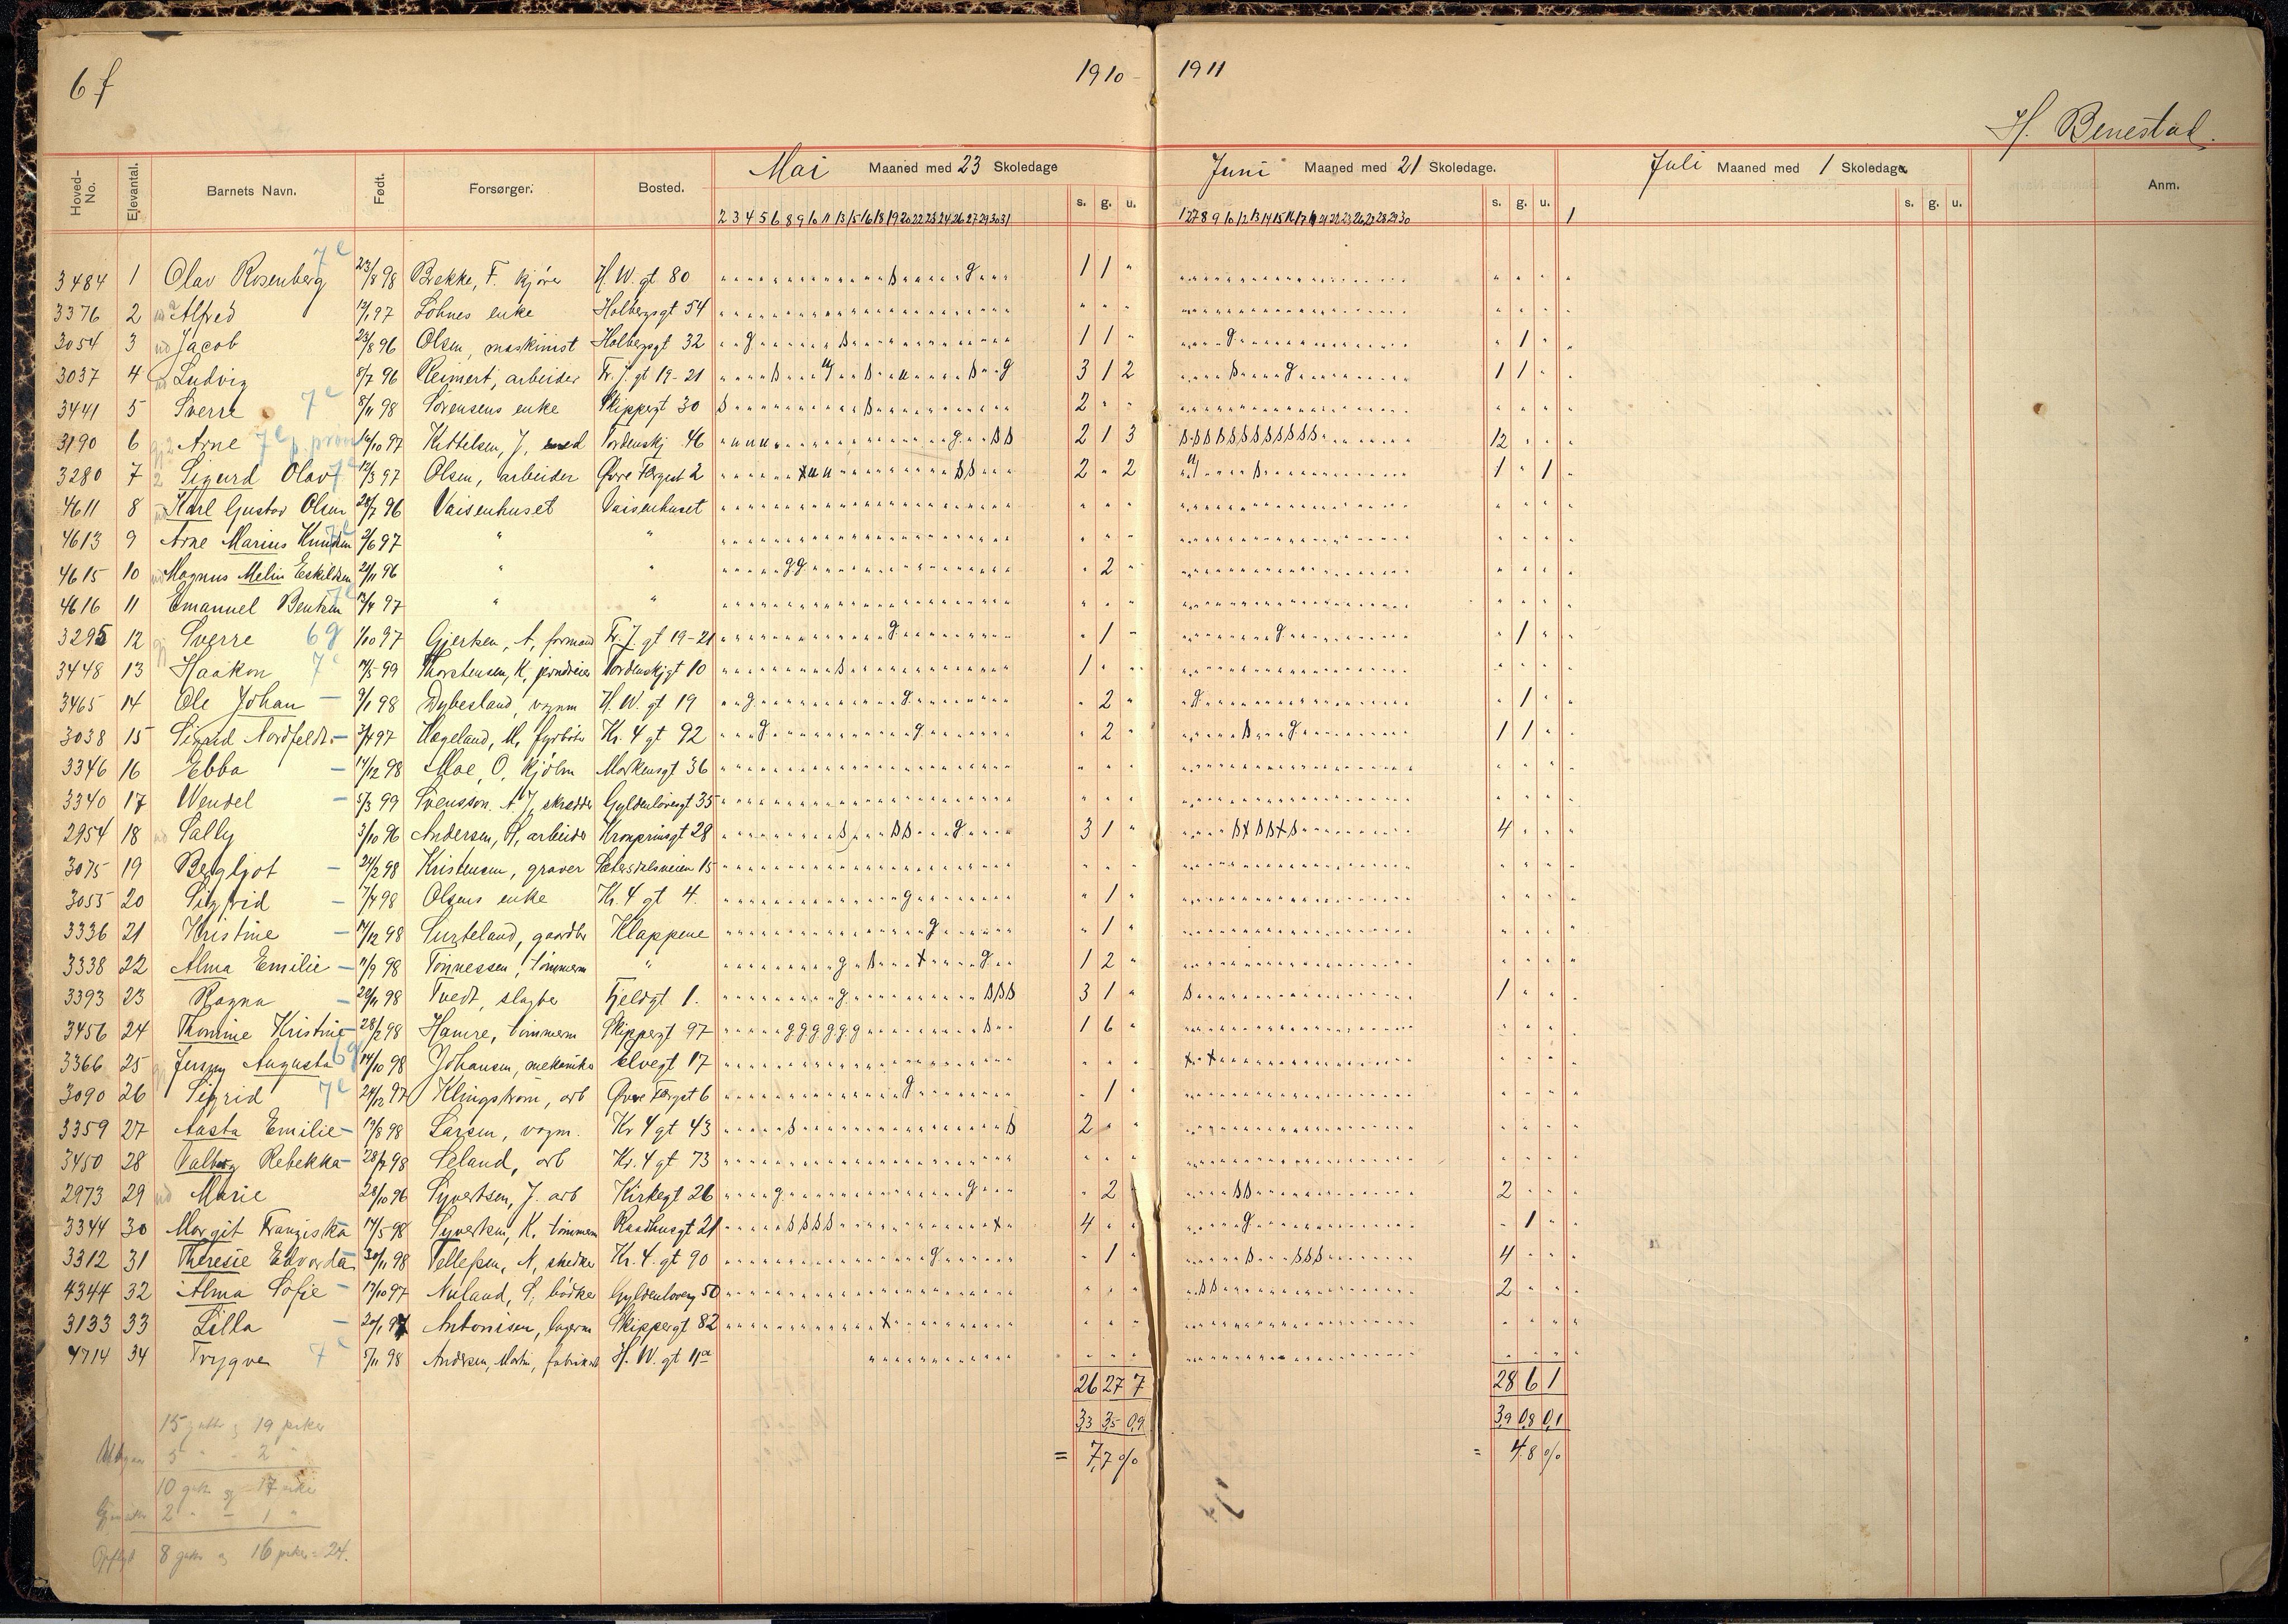 6f 1910 - 1911
H. Benestad.
Hoved-No. Elevantal. Barnets Navn. Født. Forsørger. Bosted. Mai Maaned med 23 Skoledage s. g. u. Juni Maaned med 21 Skoledage. s. g. u. Juli Maaned med 1 Skoledage s. g. u. Anm.
2 3 4 5 6 8 9 10 11 13 15 16 18 19 20 22 23 24 26 27 29 30 31 1
3484 1 Olav Rosenberg 7e 23/8 98 Brekke, F. kjører H. W. gt 80 1 1 "
3376 2 Alfred 12/1 97 Lohnes enke Holbergsgt 54 " " "
3054 3 ud Jacob 23/8 96 Olsen, maskinist Holbergsgt 32 1 1 " " 1 "
3037 4 ud Ludvig 8/7 96 Reimert, arbeider Fr. J. gt 19-21 3 1 2 1 1 "
3441 5 Sverre 7e 8/11 98 Sørensens enke Skippergt 30 2 " "
3190 6 Arne 7e p. prøve 16/10 97 Kittelsen, J. Tordenskj 46 2 1 3 12 " "
3280 7 Sigurd Olav 7e 12/3 97 Olsen, arbeider Øvre Torgest 2 2 " 2 1 " 1
4611 8 Karl Gustav Olsen 28/7 96 Vaisenhuset Vaisenhuset
4613 9 Arne Marius Knudsen 2/6 97 " "
4615 10 ud Magnus Melin Eskildsen 24/11 96 " " " 2 "
4616 11 Emanuel Bentsen 7e 13/4 97 " "
3295 12 Sverre 6g 1/10 97 Gjertsen, A, formand Fr. J. gt 19-21 " 1 " " 1 "
3448 13 Haakon 7e 17/5 99 Thorstensen, K, jerndreier Tordenskjgt 10 1 " "
3465 14 Ole Johan — 9/1 98 Dybesland, vognm H. W. gt 19 " 2 " " 1 "
3038 15 Sigurd Nordfeldt — 3/4 97 Hægeland, M, fyrbøter Kr. 4 gt 92 " 2 " 1 1 "
3346 16 Ebba — 14/12 98 Moe, O, kjølm Markensgt 36
3340 17 Wendel — 5/3 99 Svensson. A J, skrædder Gyldenløvesgt 35
2954 18 ud Sally 3/10 96 Andersen, H, arbeider Kronprinsgt 28 3 1 " 4 " "
3075 19 Bergljot — 24/2 98 Kristensen, graver Sætersdalsveien 15
3055 20 Sigfrid — 7/4 98 Olsens enke Kr. 4 gt 4. " 1 "
3336 21 Kristine — 14/12 98 Surteland, gaardbr Klappene " 1 "
3338 22 Alma Emilie — 11/9 98 Tønnessen, tømmerm " 1 2 "
3393 23 Ragna — 29/11 98 Tvedt, slagter Fjeldgt 1. 3 1 " 1 " "
3456 24 Thomine Kristine — 28/2 98 Hamre, tømmerm Skippergt 97 1 6 "
3366 25 Jenny Augusta 6g 14/10 98 Johansen, mekaniker Elvegt 17
3090 26 Sigrid 7e 24/12 97 Klingstrøm, arb Øvre Torgst 6 " 1 "
3359 27 Aasta Emilie — 19/8 98 Larsen, vognm. Kr 4 gt 43 2 " "
3450 28 Valborg Rebekka — 28/7 98 Leland, arb Kr. 4 gt 73
2973 29 ud Marie 28/10 96 Syvertsen, J. arb Kirkegt 26 " 2 2 " "
3344 30 Margit Franziska — 17/5 98 Syvertsen, K. tømmerm Raadhusgt 21 4 " " " 1 "
3312 31 Theresie Edvarda — 30/11 98 Tellefsen, N, snedker Kr. 4. gt 90 " 1 " 4 " "
4344 32 Alma Sofie — 13/10 97 Nuland, S, bødker Gyldenloveg 50 2 " "
3133 33 Lilla — 20/1 97 Antonisen, lagerm Skippergt 82
4714 34 Trygve 7e 5/11 98 Andersen, Martin, fabrikarb H. W. gt 11a
26 27 7 28 6 1
3,3 3,5 0,9 3,9 0,8 0,1
= 7,7 % = 4.8 %
15 gutter og 19 piker
5 " - 2 "
10 gutt og 17 piker
2 " - 1 "
Opflyt 8 gutter og 16 piker = 24.